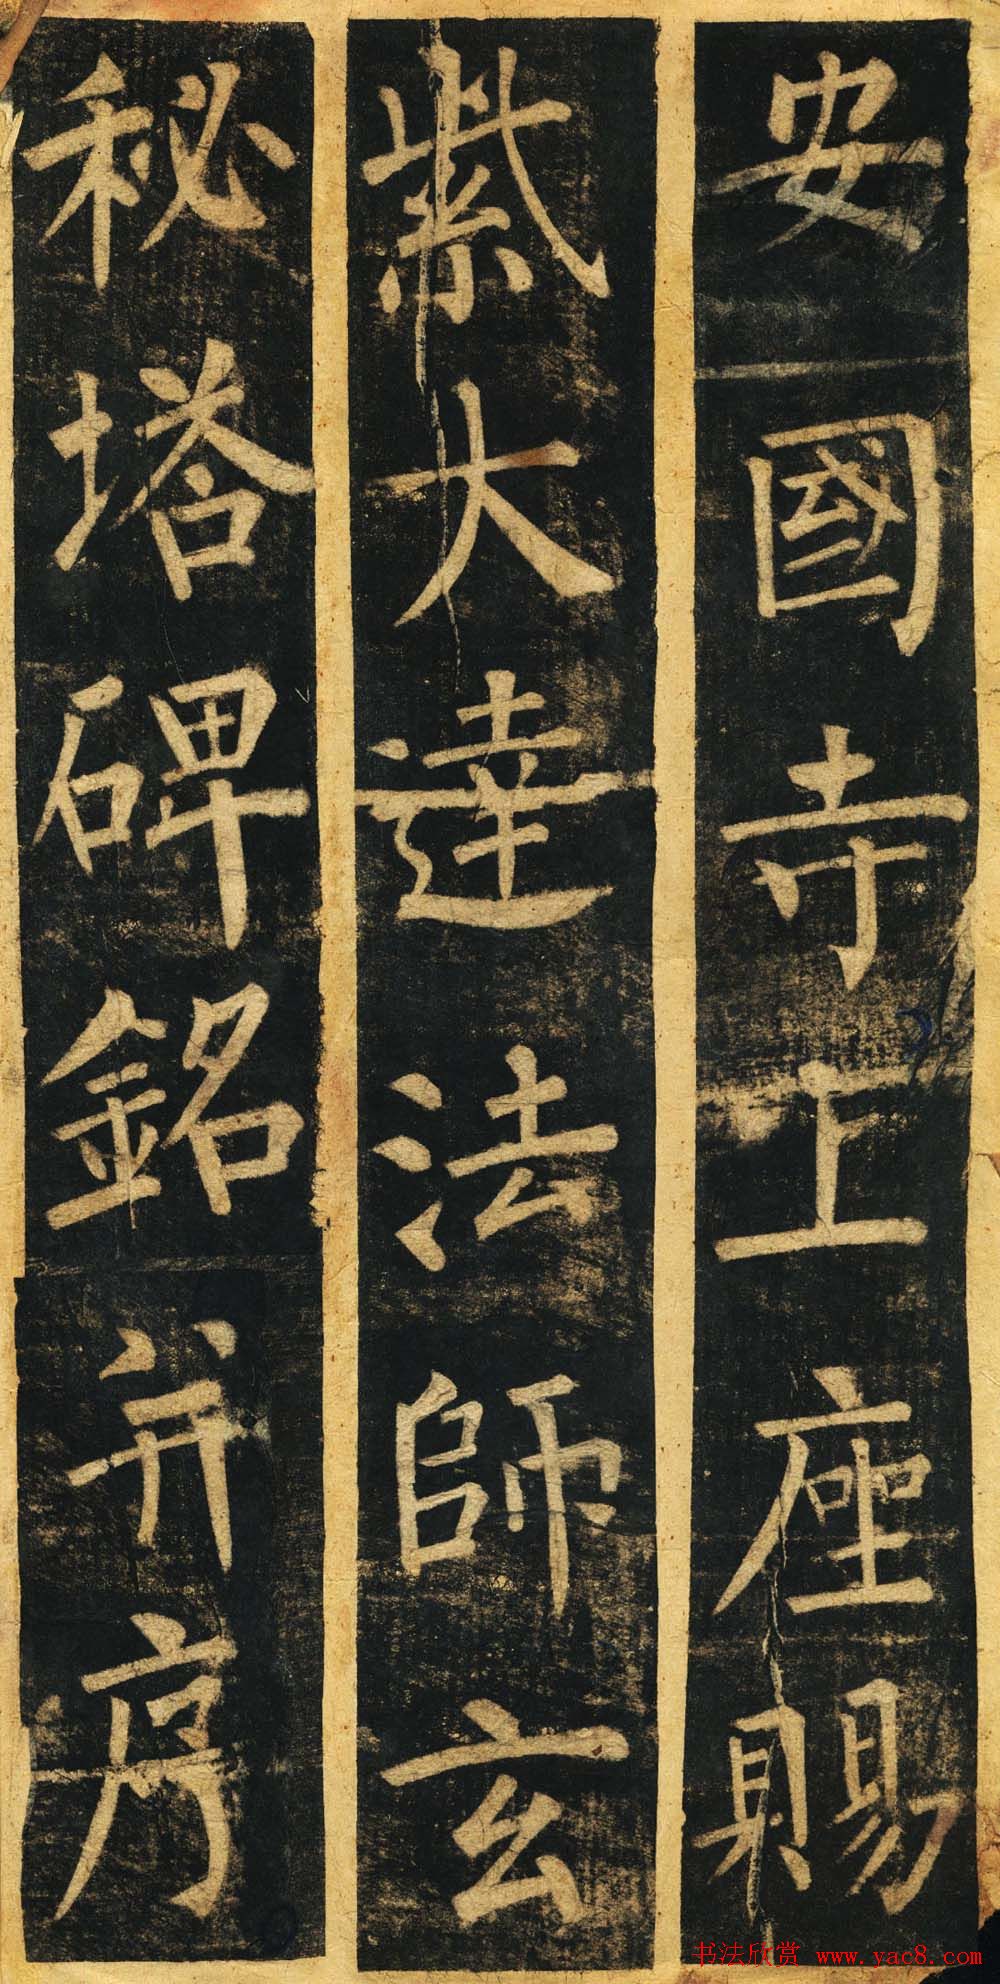 安國寺上座賜
紫大達法師玄
秘塔碑銘并序
书法欣赏 www.yac8.com